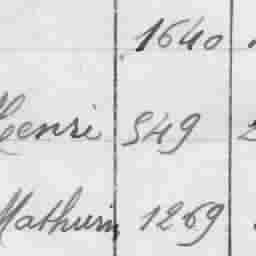 1640
Henri 549
Mathurin 1269